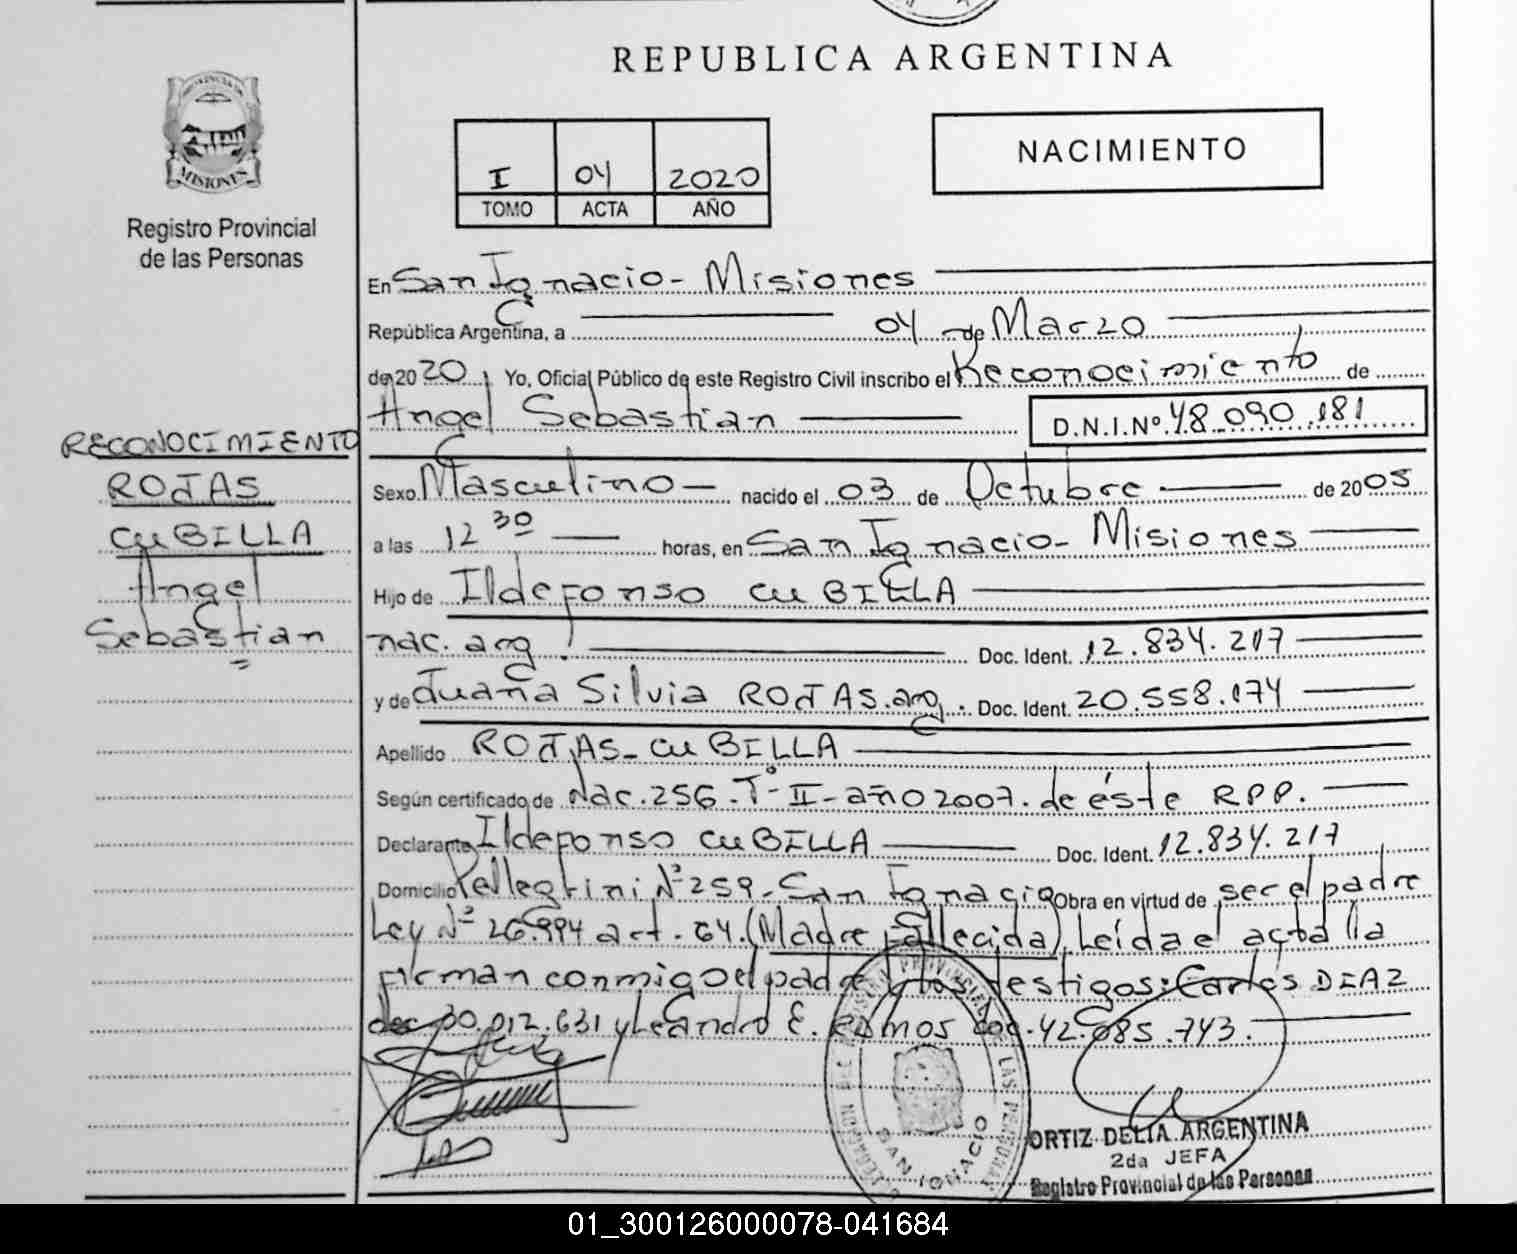 REPUBLICA ARGENTINA
PROVINCIA DE
MISIONES
Registro Provincial
de las Personas
I 04 2020
TOMO ACTA AÑO
NACIMIENTO
En San Ignacio - Misiones
República Argentina, a 04 de Marzo
de 2020, Yo, Oficial Público de este Registro Civil inscribo el Reconocimiento de
Angel Sebastian D.N.I.Nº 48.090.181
RECONOCIMIENTO
ROJAS
CUBILLA
Angel
Sebastian
Sexo Masculino - nacido el 03 de Octubre de 2005
a las 12 30 horas, en San Ignacio - Misiones
Hijo de Ildefonso CUBILLA
nac. arg. Doc. Ident. 12.834.217
y de Juana Silvia ROJAS. arg. Doc. Ident. 20.558.174
Apellido ROJAS - CUBILLA
Según certificado de Nac. 256 - Tº II - año 2007. de éste RPP.
Declarante Ildefonso CUBILLA Doc. Ident. 12.834.217
Domicilio Pellegrini Nº 259 - San Ignacio Obra en virtud de ser el padre
Ley Nº 26.994 art. 64. (Madre Fallecida). Leída el acta la
firman conmigo el padre y los testigos: Carlos DIAZ
doc 30.012.631 y Leandro E. RAMOS doc. 42.685.743.
SAN IGNACIO
ORTIZ DELIA ARGENTINA
2da JEFA
Registro Provincial de las Personas
01_300126000078-041684